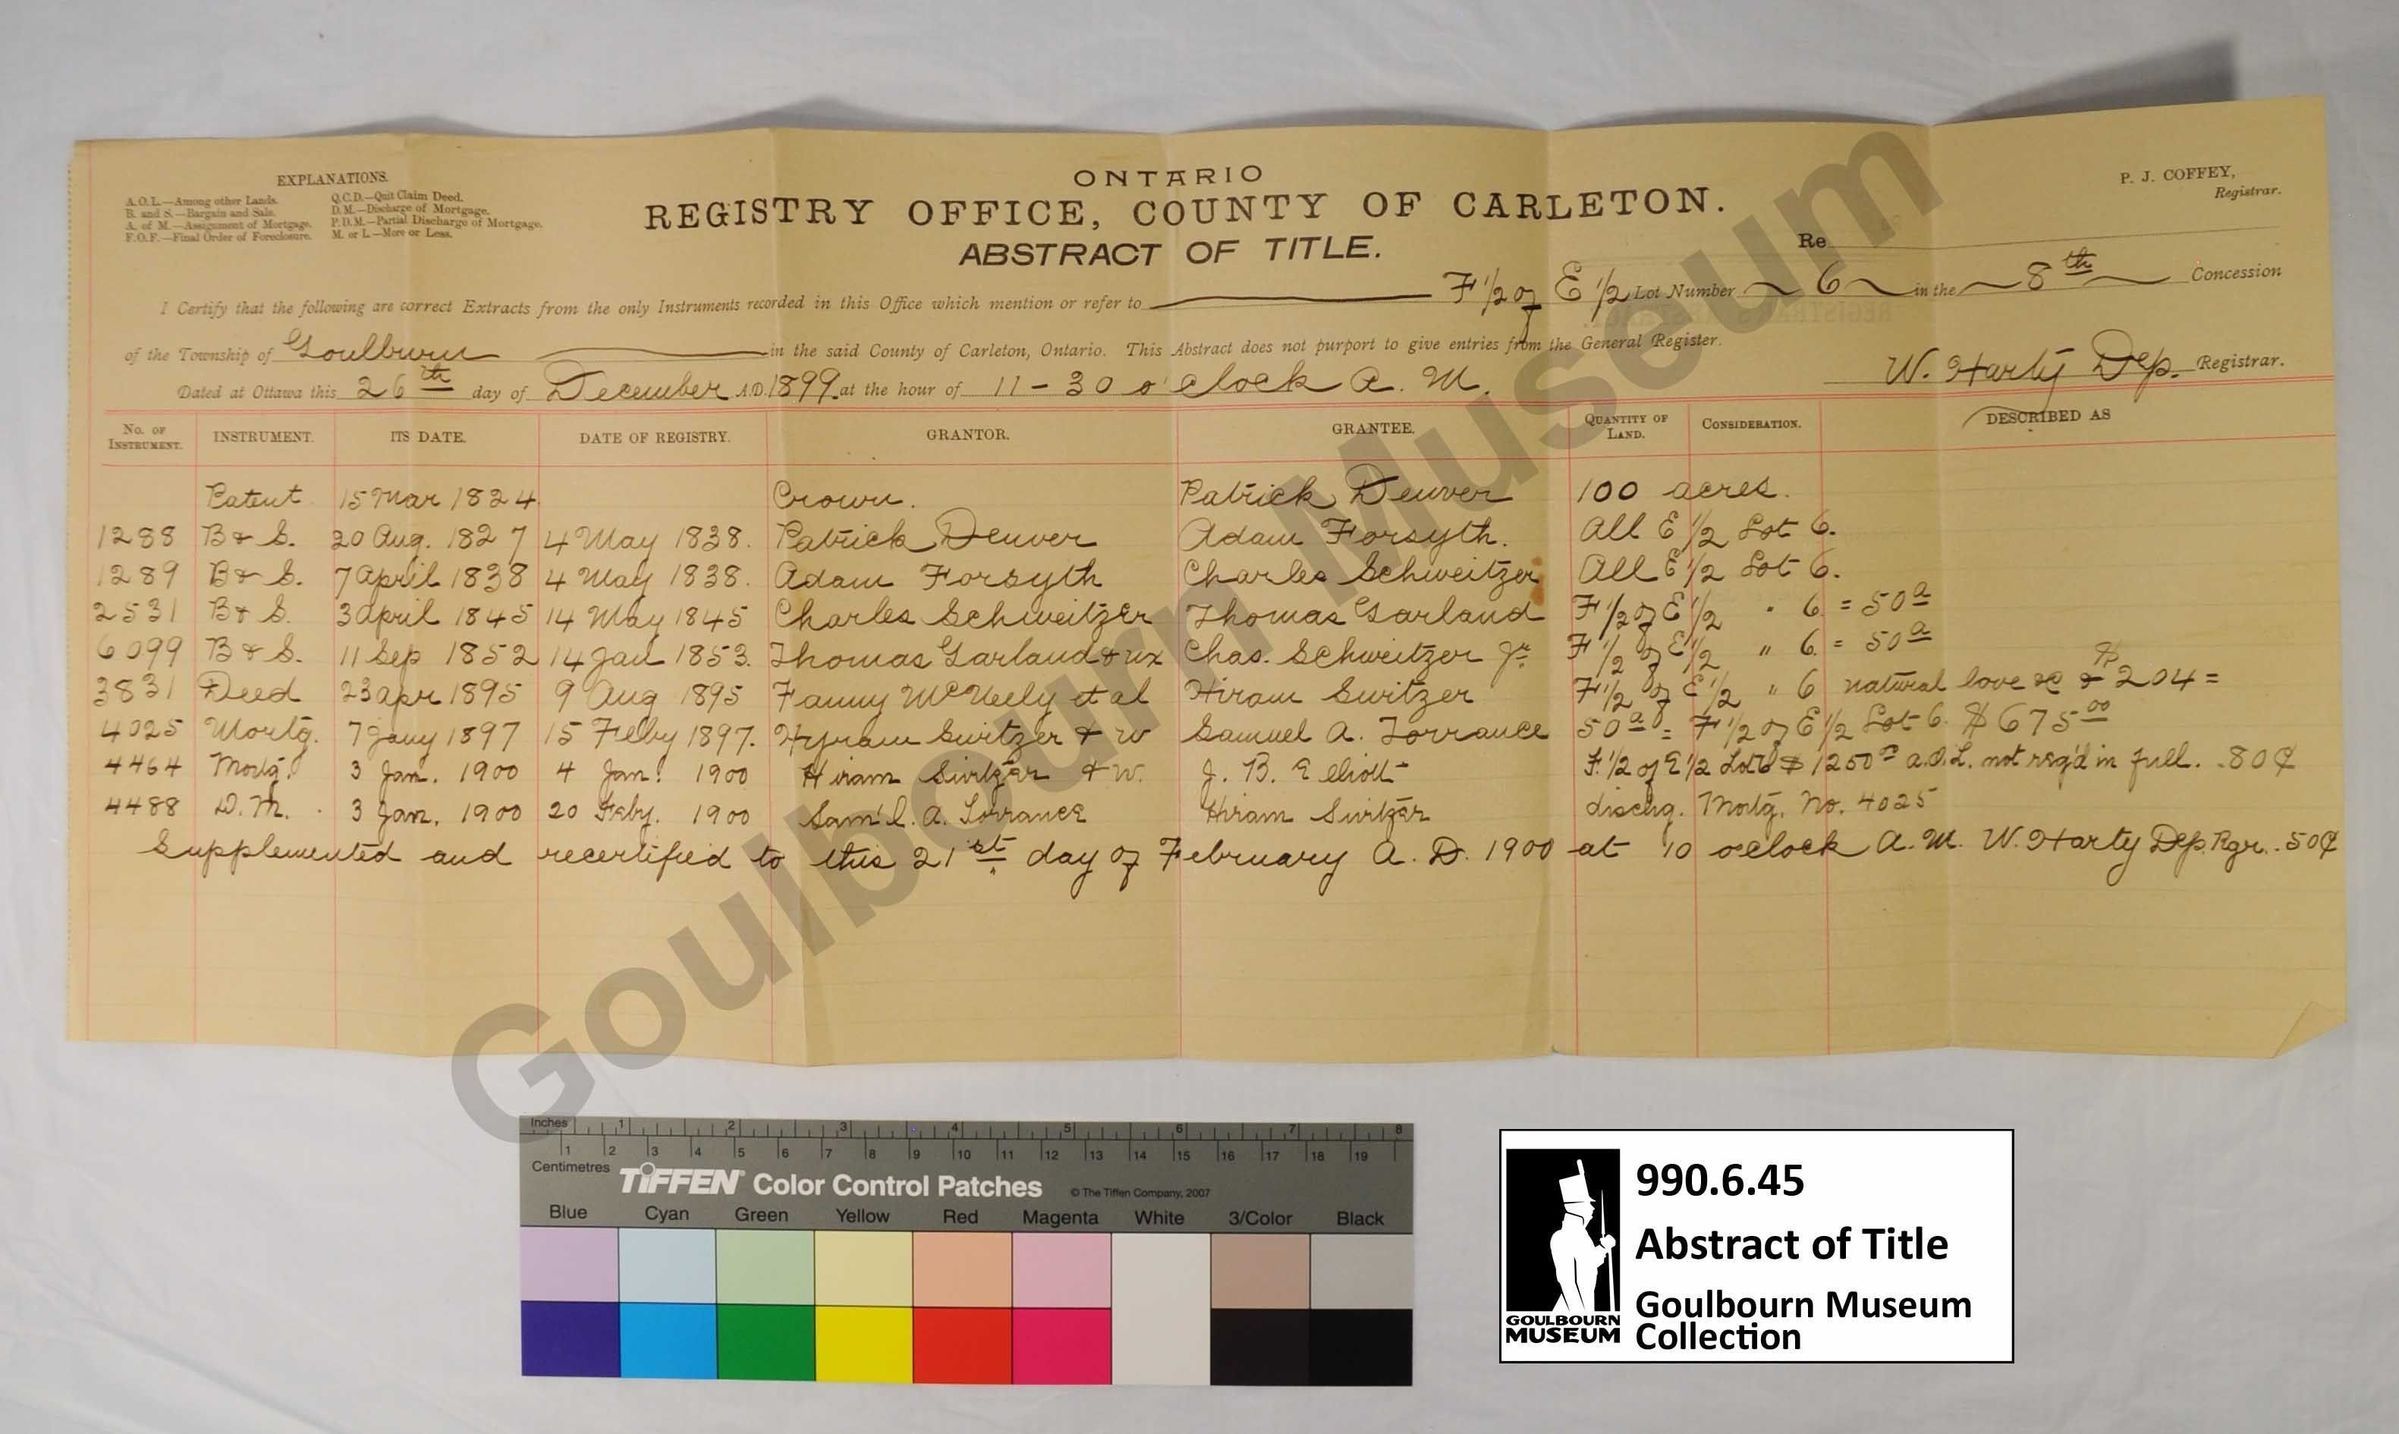 EXPLANATIONS.
A.O.L.—Among other Lands. Q.C.D.—Quit Claim Deed.
B. and S.—Bargain and Sale. D.M.—Discharge of Mortgage.
A. of M.—Assignment of Mortgage. P.D.M.—Partial Discharge of Mortgage.
F.O.F.—Final Order of Foreclosure. M. or L.—More or Less.
ONTARIO
REGISTRY OFFICE, COUNTY OF CARLETON.
ABSTRACT OF TITLE.
P. J. COFFEY,
Registrar.
Re
I Certify that the following are correct Extracts from the only Instruments recorded in this Office which mention or refer to F 1/2 of E 1/2 Lot Number 6 in the 8th Concession
of the Township of Goulburn in the said County of Carleton, Ontario. This Abstract does not purport to give entries from the General Register.
Dated at Ottawa this 26th day of December A.D. 1899. at the hour of 11-30 o'clock A. M. W. Harty Dep. Registrar.
No. OF INSTRUMENT. INSTRUMENT. ITS DATE. DATE OF REGISTRY. GRANTOR. GRANTEE. QUANTITY OF LAND. CONSIDERATION. DESCRIBED AS
Patent 15 Mar 1824. Crown. Patrick Denver 100 acres.
1288 B & S. 20 Aug. 1827 4 May 1838. Patrick Denver Adam Forsyth. All E 1/2 Lot 6.
1289 B & S. 7 April 1838 4 May 1838. Adam Forsyth Charles Schweitzer All E 1/2 Lot 6.
2531 B & S. 3 April 1845 14 May 1845 Charles Schweitzer Thomas Garland F 1/2 of E 1/2 " 6. = 50 a
6099 B & S. 11 Sep 1852 14 Jan 1853. Thomas Garland & ux Chas. Schweitzer Jr. F 1/2 of E 1/2 " 6. = 50 a
3831 Deed 23 apr 1895 9 Aug 1895 Fanny McNeely et al Hiram Switzer F 1/2 of E 1/2 " 6 natural love &c & $204=
4025 Mortg. 7 Jany 1897 15 Feby 1897. Hyram Switzer & w Samuel A. Torrance 50 a = F 1/2 of E 1/2 Lot 6. $675 00
4464 Mortg. 3 Jan. 1900 4 Jan. 1900 Hiram Switzer & W. J. B. Elliott F. 1/2 of E 1/2 Lot 6 $1250 a.O.L. not reg'd in full. .80¢
4488 D.M. 3 Jan. 1900 20 Feby. 1900 Sam'l. A. Torrance Hiram Switzer dischg. Mortg. No. 4025
Supplemented and recertified to this 21st day of February A.D. 1900 at 10 o'clock A.M. W. Harty Dep. Rgr. .50¢
Goulbourn Museum
Inches 1 2 3 4 5 6 7 8
1 2 3 4 5 6 7 8 9 10 11 12 13 14 15 16 17 18 19
Centimetres
TIFFEN Color Control Patches © The Tiffen Company, 2007
Blue Cyan Green Yellow Red Magenta White 3/Color Black
GOULBOURN
MUSEUM
990.6.45
Abstract of Title
Goulbourn Museum
Collection